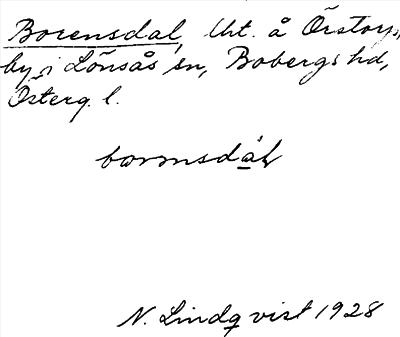 Borensdal, lht. å Örstorps
by i Lönsås sn, Bobergs hd,
Österg. l.
bormsdal
N. Lindqvist 1928